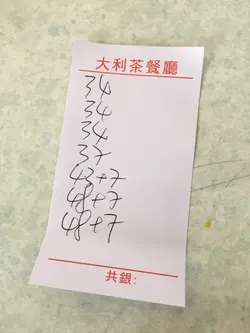 大利茶餐廳
34
34
34
37
43+7
48+7
48+7
共銀: